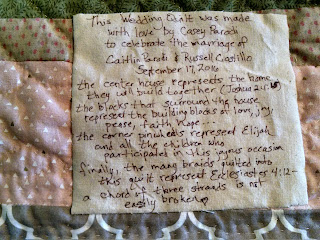 This Wedding Quilt was made
with love by Casey Parodi
to celebrate the marriage of
Caitlin Parodi & Russell Castillo
September 17, 2016
the center house represents the home
they will build together (Joshua 24:15)
the blocks that surround the house
represent the building blocks of love, joy,
peace, faith, hope
the corner pinwheels represent Elijah
and all the children who
participated in this joyous occasion
finally, the many braids quilted into
this quilt represent Ecclesiastes 4:12-
a chord of three strands is not
easily broken